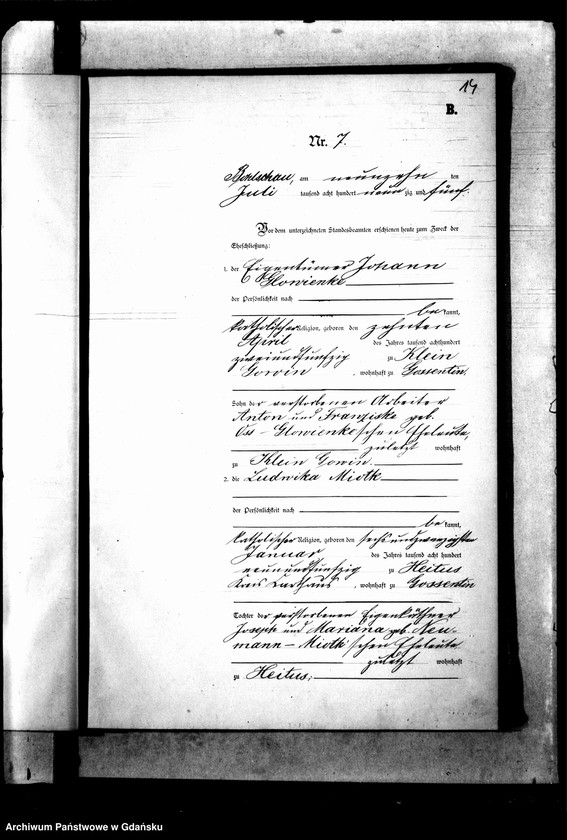 14
B.
Nr. 7.
Bohlschau, am neunzehn ten
Juli tausend acht hundert neun zig und fünf.
Vor dem unterzeichneten Standesbeamten erschienen heute zum Zweck der
Eheschließung:
1. der Eigentümer Johann
Glowienke
der Persönlichkeit nach
be kannt,
katholischer Religion, geboren den zehnten
April des Jahres tausend achthundert
zweiundfünfzig zu Klein
Gowin, wohnhaft zu Gossentin,
Sohn der verstorbenen Arbeiter
Anton und Franziska geb.
Oss-Glowienke'schen Eheleute,
zuletzt wohnhaft
zu Klein Gowin.
2. die Ludwika Miotk
der Persönlichkeit nach
be kannt,
katholischer Religion, geboren den sechsundzwanzigsten
Januar des Jahres tausend acht hundert
neunundfünfzig zu Heitus
Kreis Carthaus, wohnhaft zu Gossentin
Tochter der verstorbenen Eigenkäthner
Joseph und Mariana geb. Neu-
mann-Miotk'schen Eheleute
zuletzt wohnhaft
zu Heitus.
Archiwum Państwowe w Gdańsku